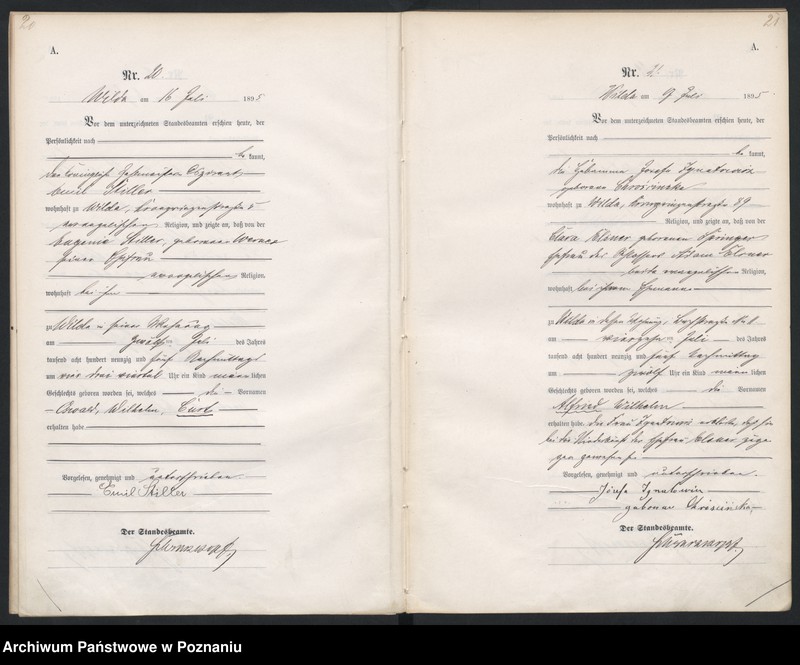 20
A.
Nr. 20
Wilda am 16 Juli 1895
Vor dem unterzeichneten Standesbeamten erschien heute, der
Persönlichkeit nach
be kannt,
Emil Stiller
wohnhaft zu Wilda,
evangelischen Religion, und zeigte an, daß von der
Eugenie Stiller, geborenen Werner
seiner Ehefrau
evangelischen Religion,
wohnhaft bei ihm
zu Wilda in seiner Wohnung
am zwölften Juli des Jahres
tausend acht hundert neunzig und fünf Nachmittags
um drei viertel Uhr ein Kind männ lichen
Geschlechts geboren worden sei, welches die Vornamen
Oswald, Wilhelm, Curt
erhalten habe
Vorgelesen, genehmigt und unterschrieben
Emil Stiller
Der Standesbeamte.
21
A.
Nr. 21
Wilda am 19 Juli 1895
Vor dem unterzeichneten Standesbeamten erschien heute, der
Persönlichkeit nach
be kannt,
die Hebamme Josefa Ignatowicz
geborene
wohnhaft zu Wilda, Kronprinzenstraße 89
Religion, und zeigte an, daß von der
Clara geborenen Springer
Ehefrau des Schlossers Adam
beide evangelischen Religion,
wohnhaft bei ihrem Ehemanne
zu Wilda in dessen Wohnung,
am vierzehnten Juli des Jahres
tausend acht hundert neunzig und fünf Nachmittags
um zwölf Uhr ein Kind männ lichen
Geschlechts geboren worden sei, welches die Vornamen
Alfred Wilhelm
erhalten habe. Die Frau erklärte, daß sie
bei der Niederkunft der Ehefrau zuge
gen gewesen sei
Vorgelesen, genehmigt und unterschrieben.
Józefa
geborene
Der Standesbeamte.
Archiwum Państwowe w Poznaniu